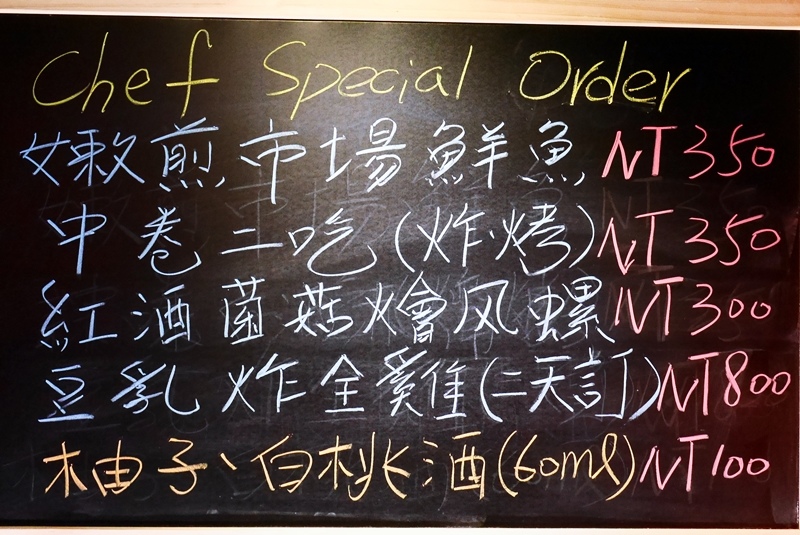 Chef Special Order
嫩煎市場鮮魚 NT350
中卷二吃(炸.烤) NT350
紅酒菌菇燴风螺 NT300
豆乳炸全雞(二天訂) NT800
柚子、白桃酒(60ml) NT100